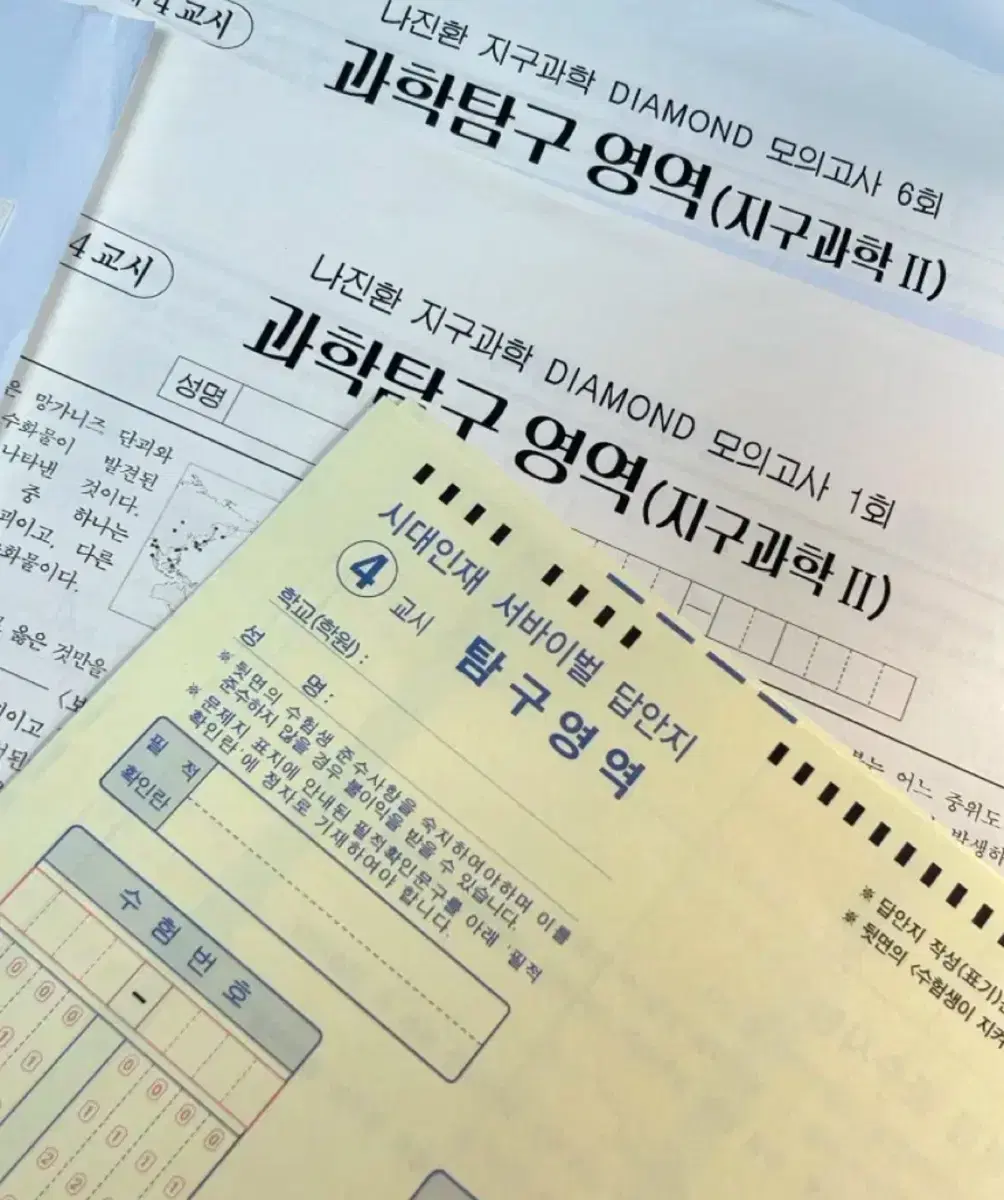 4 교시
나진환 지구과학 DIAMOND 모의고사 6회
과학탐구 영역(지구과학 II)
4 교시
나진환 지구과학 DIAMOND 모의고사 1회
과학탐구 영역(지구과학 II)
성명
은 망가니즈 단괴와
수화물이 발견된
나타낸 것이다.
중 하나는
괴이고, 다른
화물이다.
옳은 것만을
이고
어느 중위도
발생하
시대인재 서바이벌 답안지
4 교시 탐구영역
학교(학원) :
성 명 :
※ 뒷면의 수험생 준수사항을 숙지하여야하며 이를
준수하지 않을 경우 불이익을 받을 수 있습니다.
※ 문제지 표지에 안내된 필적확인문구를 아래 '필적
확인란'에 정자로 기재하여야 합니다.
필 적
확인란
수 험 번 호
-
0 0 0 0 0 0
1 1 1 1 1
2 2 2
※ 답안지 작성(표기)
※ 뒷면의 <수험생이 지켜